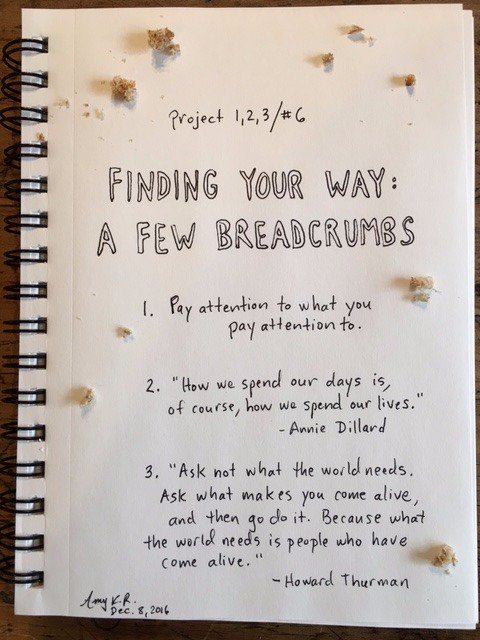 Project 1,2,3/#6
FINDING YOUR WAY:
A FEW BREADCRUMBS
1. Pay attention to what you
pay attention to.
2. "How we spend our days is,
of course, how we spend our lives."
- Annie Dillard
3. "Ask not what the world needs.
Ask what makes you come alive,
and then go do it. Because what
the world needs is people who have
come alive."
- Howard Thurman
Amy K.R.
Dec. 8, 2016